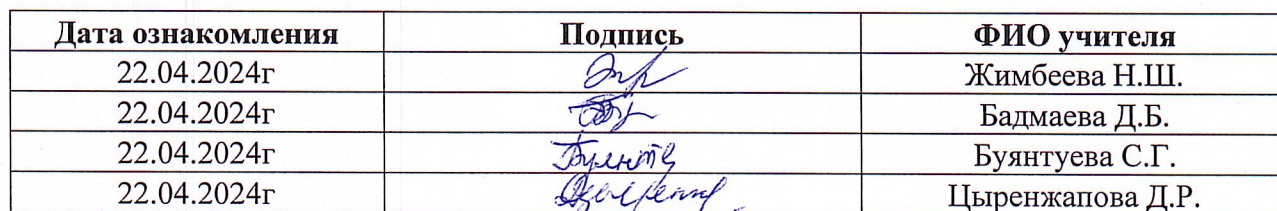 Дата ознакомления Подпись ФИО учителя
22.04.2024г Жимбеева Н.Ш.
22.04.2024г Бадмаева Д.Б.
22.04.2024г Буянтуева С.Г.
22.04.2024г Цыренжапова Д.Р.